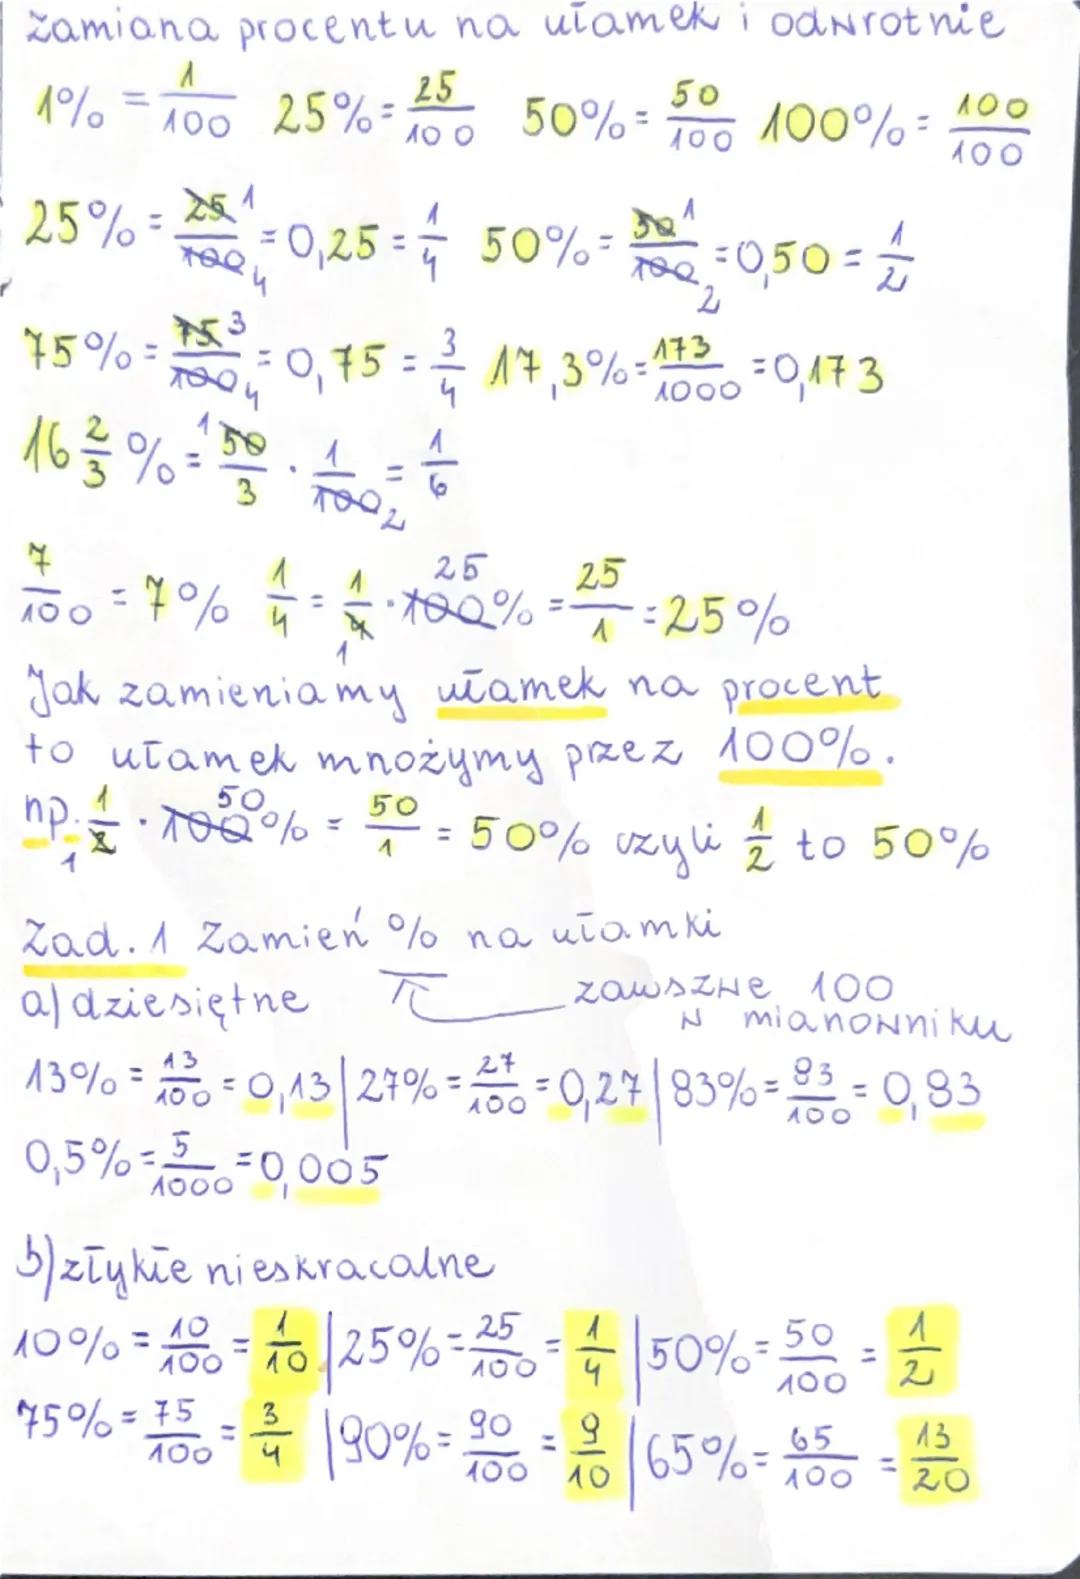 Zamiana procentu na ułamek i odwrotnie
1% = 1/100 25% = 25/100 50% = 50/100 100% = 100/100
25% = 25/100 1 4 = 0,25 = 1/4 50% = 50/100 1 2 = 0,50 = 1/2
75% = 75/100 3 4 = 0,75 = 3/4 17,3% = 173/1000 = 0,173
16 2/3 % = 1 50/3 · 1/100 2 = 1/6
7/100 = 7% 1/4 = 1/4 1 · 100% 25 = 25/1 = 25%
Jak zamieniamy ułamek na procent
to ułamek mnożymy przez 100%.
np. 1/2 1 · 100% 50 = 50/1 = 50% czyli 1/2 to 50%
Zad. 1 Zamień % na ułamki
a) dziesiętne zawszwe 100
w mianowniku
13% = 13/100 = 0,13 | 27% = 27/100 = 0,27 | 83% = 83/100 = 0,83
0,5% = 5/1000 = 0,005
b) złykłe nieskracalne
10% = 10/100 = 1/10 | 25% = 25/100 = 1/4 | 50% = 50/100 = 1/2
75% = 75/100 = 3/4 | 90% = 90/100 = 9/10 | 65% = 65/100 = 13/20